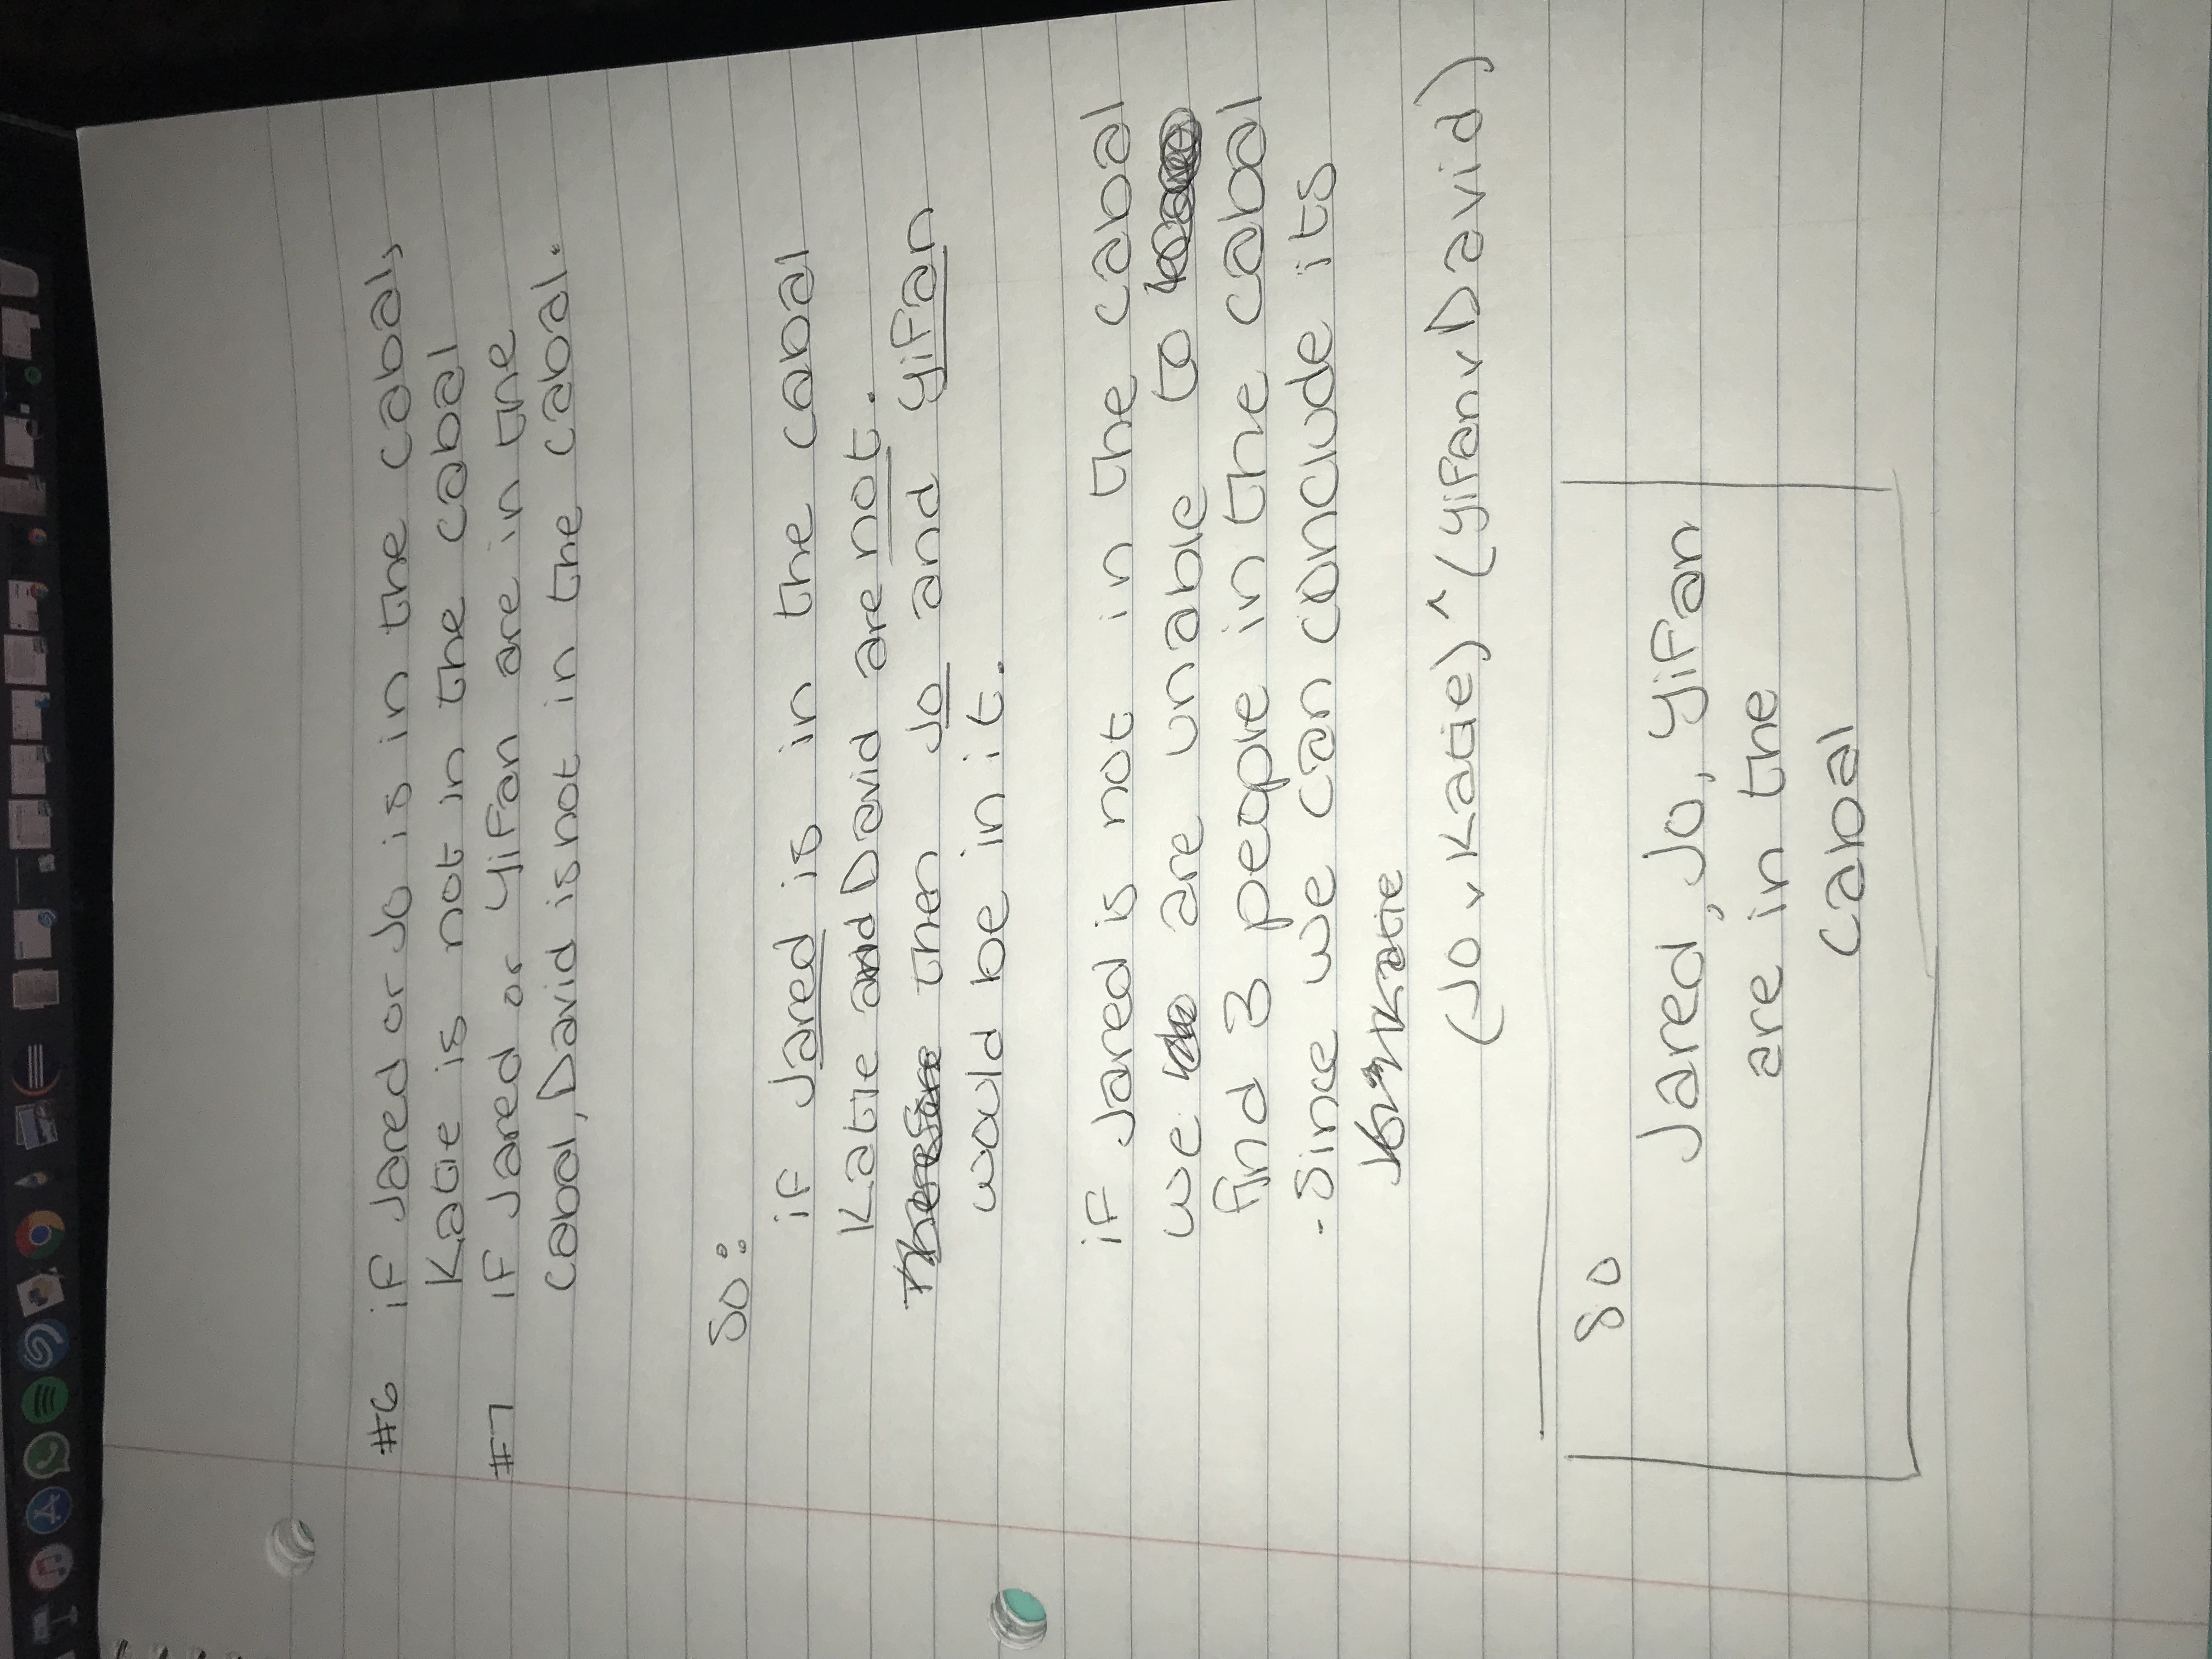 #6 if Jared or Jo is in the cabal,
Katie is not in the cabal
#7 if Jared or Yifan are in the
cabal, David is not in the cabal.
So:
if Jared is in the cabal
Katie and David are not.
Therefore then Jo and Yifan
would be in it.
if Jared is not in the cabal
we do are unable to
find 3 people in the cabal
- Since we can conclude its
Katie
(Jo v Katie) ^ (Yifan v David)
So
Jared, Jo, Yifan
are in the
cabal